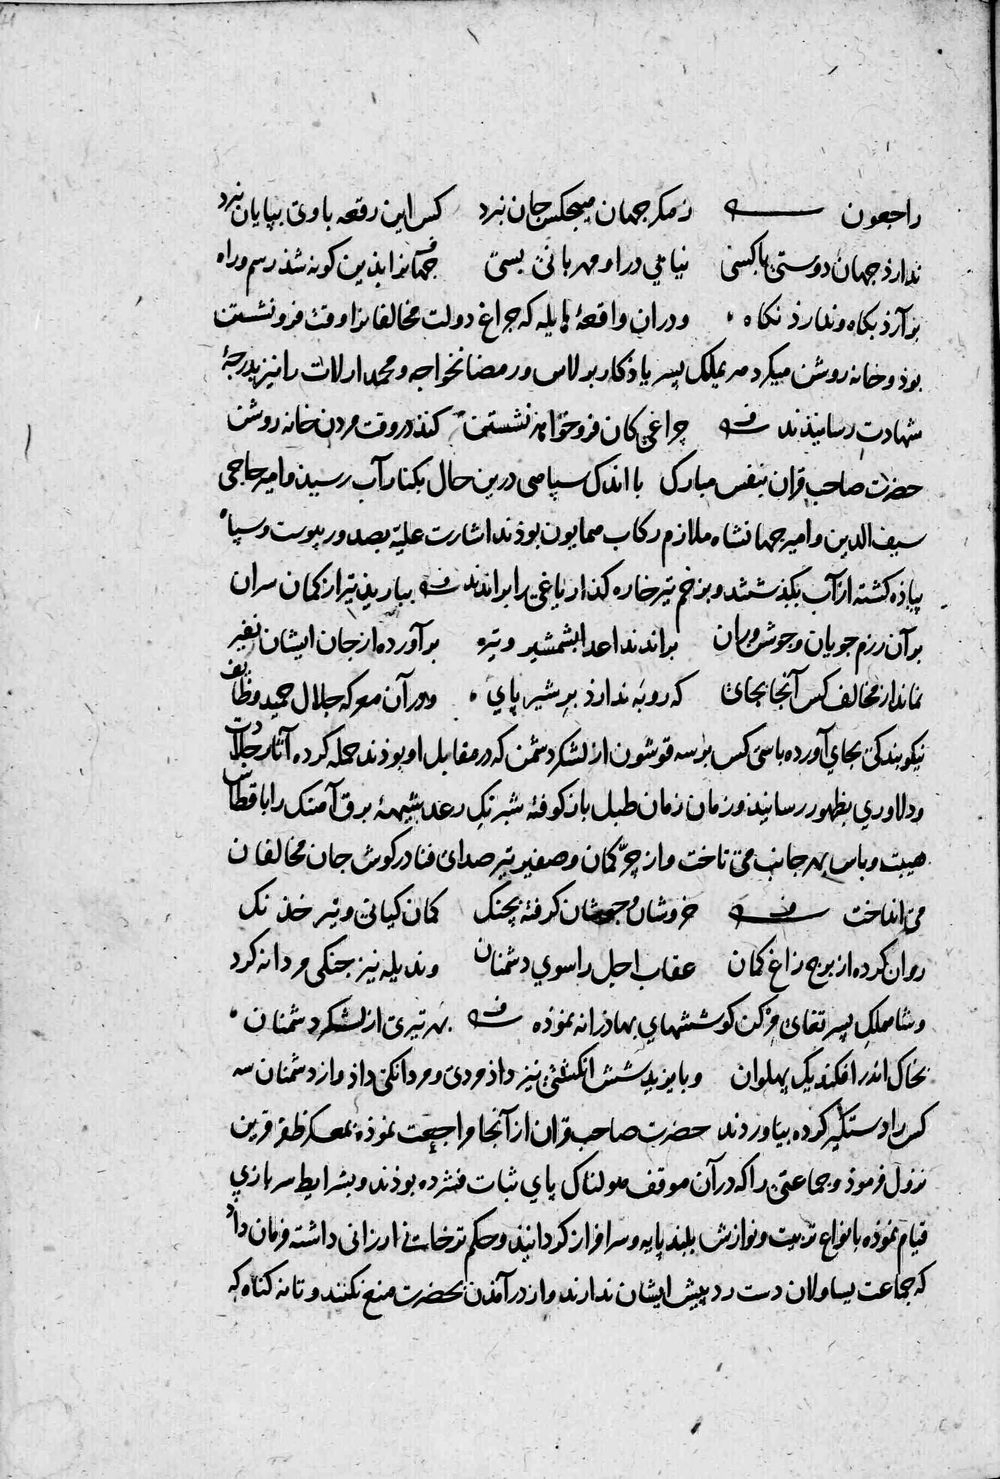 راجعون ز مکر جهان هیچکس جان نبرد کس این رقعه با وی بپایان نبرد
ندارد جهان دوستی با کسی نیابی درو مهربانی بسی جهانرا بدین گونه شد رسم و راه
برآرد بگاه و ندارد نگاه ودران واقعهٔ هایله که چراغ دولت مخالفانرا وقت فرو نشستن
بوذ و خانه روشن میکرد هریملک پسر یاذکار برلاس و رمضانخواجه و محمد ارلات را نیز بدرجهٔ
شهادت رسانیذند چراغی کان فرو خواهد نشستن کند در وقت مردن خانه روشن
حضرت صاحب قران بنفس مبارک با اندک سپاهی درین حال بکنار آب رسیذ و امیر حاجی
سیف الدین و امیر جهانشاه ملازم رکاب همایون بوذند اشارت علیّه بصدور پیوست و سپاه
پیاذه گشته از آب بگذشتند و بزخم تیر خاره گذار یاغی را براندند بباریذ تیر از کمان سران
بر آن رزم جویان و جوشن وران براندند اعدا بشمشیر و تیر برآورده از جان ایشان نفیر
نماند از مخالف کس آنجا بجای که روبه ندارذ بر شیر پای ودر آن معرکه جلال حمید وظایف
نیکو بندگی بجای آورده باسی کس بر سه قوشون از لشکر دشمن که در مقابل او بوذند حمله کرده آثار جلادت
و دلاوری بظهور رسانیذ و زمان زمان طبل باز کوفته شبرنگ رعد شیههٔ برق آهنگ را با قطاس
هیبت و باس بهر جانب می تاخت و از چرّ کمان و صفیر تیر صدای فنا در گوش جان مخالفان
می انداخت خروشان و جوشان گرفته بچنگ کمان کیانی و تیر خدنگ
روان کرده از برج زاغ کمان عقاب اجل را سوی دشمنان وندیله نیز جنگی مردانه کرد
وشاهملک پسر تغای مرکن کوششهای بهاذرانه نموذه بهر تیری از لشکر دشمنان
بخاک اندر افکند یک پهلوان و بایزید شش انگشتی نیز داذ مردی و مردانگی داذ و از دشمنان سه
کس را دستگیر کرده بیاوردند حضرت صاحب قران از آنجا مراجعت نموذه بمعسکر ظفر قرین
نزول فرموذ و جماعتی را که در آن موقف هولناک پای ثبات فشرده بوذند و بشرایط سربازی
قیام نموذه بانواع تربیت و نوازش بلند پایه و سرافراز گردانید و حکم ترخانی ارزانی داشته فرمان داد
که جماعت یساولان دست رد پیش ایشان ندارند و از درآمدن بحضرت منع نکنند و تا نه گناه که